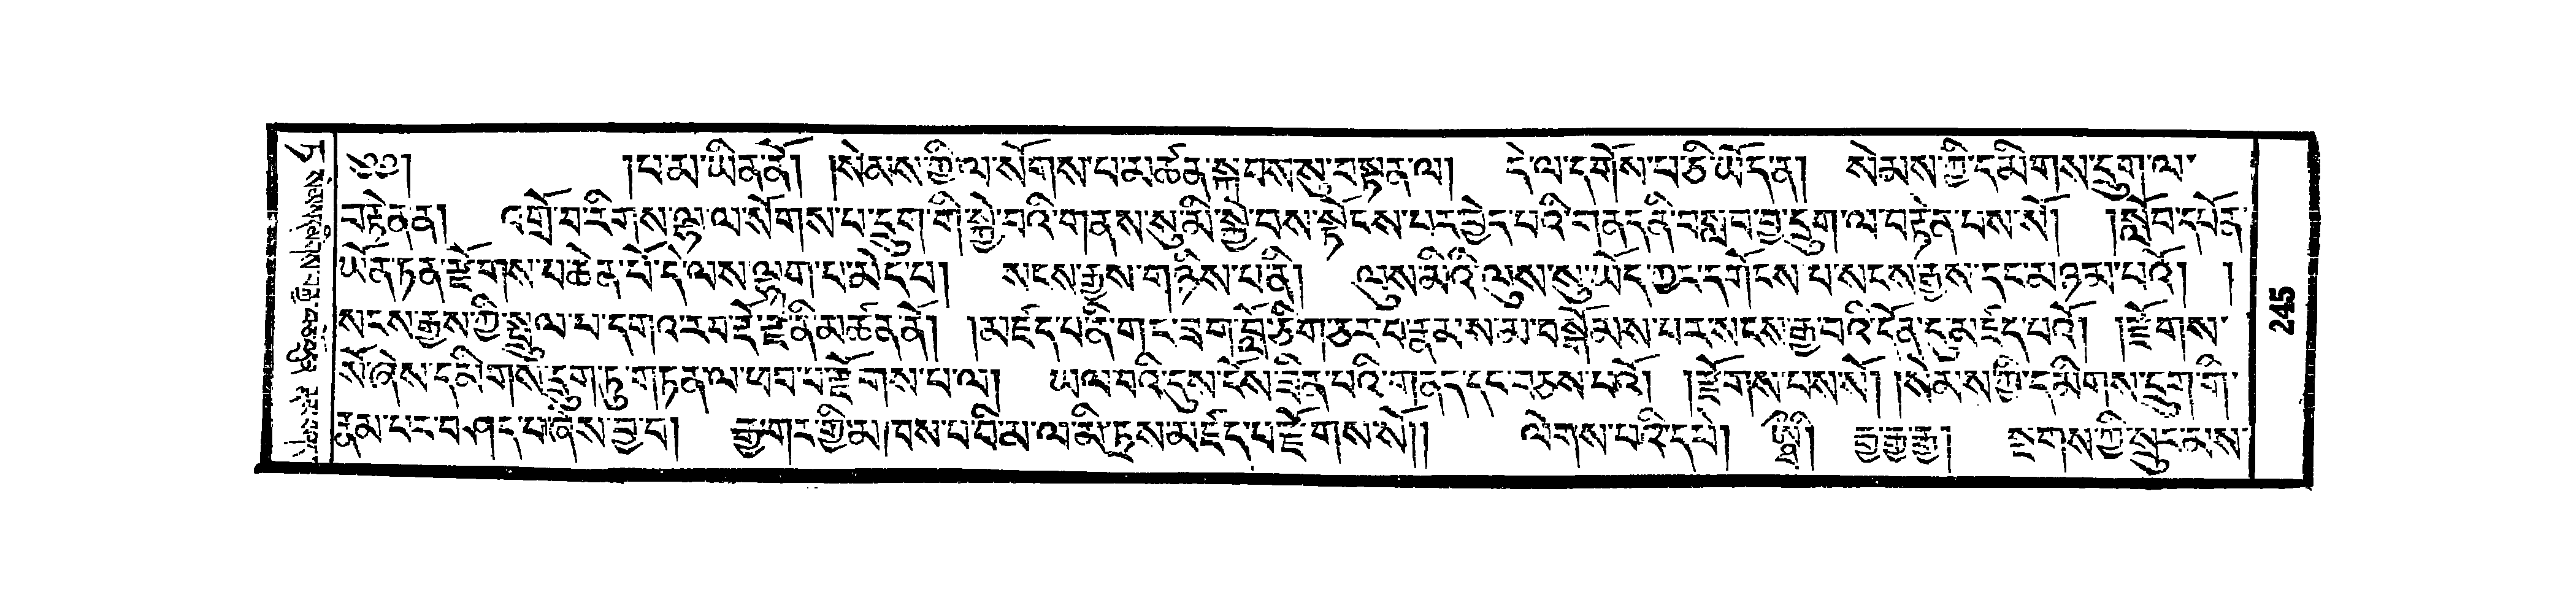 ༄༅། །པ་མ་ཡིན་ནོ། །སེམས་ཀྱི་ལ་སོགས་པ་མཚན་སྐབས་སུ་བསྟན་ལ། དེ་ལ་དགོས་པ་ཅི་ཡོད་ན། སེམས་ཀྱི་དམིགས་དྲུག་ལ་
བརྟེན་ན། འགྲོ་བ་རིགས་ལྔ་ལ་སོགས་པ་དྲུག་གི་སྐྱེ་བའི་གནས་སུ་མི་སྐྱེ་བས་སྟོངས་པར་བྱེད་པའི་གནད་ནི་བསླབ་བྱ་དྲུག་ལ་བརྟེན་པས་སོ། །སློབ་དཔོན་
ཡོན་ཏན་རྫོགས་པ་ཆེན་པོ་དེ་ལས་ལྷག་པ་མེད་པ། སངས་རྒྱས་གཉིས་པ་ནི། ལུས་མིའི་ལུས་སུ་ཡོད་ཀྱང་དགོངས་པ་སངས་རྒྱས་དང་མཉམ་པའོ། །
སངས་རྒྱས་ཀྱི་སྤྲུལ་པ་དགའ་རབ་རྡོ་རྗེ་ནི་མཚན་ནོ། །མཛད་པ་ནི་གང་ཟག་བློ་ཅིག་ཅར་བ་རྣམས་མ་བསྒོམས་པར་སངས་རྒྱ་བའི་དོན་དུ་མཛད་པའོ། །རྫོགས་
སོ་ཞེས་དམིགས་དྲུག་ཏུ་གཏན་ལ་ཕབ་པ་རྫོགས་པ་ལ། ཡལ་བའི་དུས་ངོས་ཟིན་པའི་གནད་དང་བཅས་པའོ། །རྫོགས་པས་སོ། །སེམས་ཀྱི་དམིགས་དྲུག་གི་
རྣམ་པར་བཤད་པ་ཞེས་བྱ་བ། རྒྱ་གར་གྱི་མཁས་པ་བི་མ་ལ་མི་ཏྲས་མཛད་པ་རྫོགས་སོ།། ལེགས་པའི་དཔེ། ཨི་ཐི། རྒྱ་རྒྱ་རྒྱ། སྔགས་ཀྱི་སྲུང་མས་
245